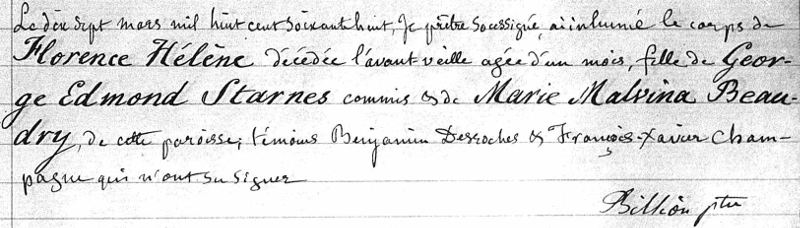 Le dix sept mars mil huit cent soixante huit, Je prêtre soussigné, ai inhumé le corps de
Florence Hélène décédée l'avant veille agée d'un mois, fille de Geor-
ge Edmond Starnes commis & de Marie Malvina Beau-
dry, de cette paroisse; témoins Benjamin Desroches & François-Xavier Cham-
pagne qui n'ont su signer
Billion ptre